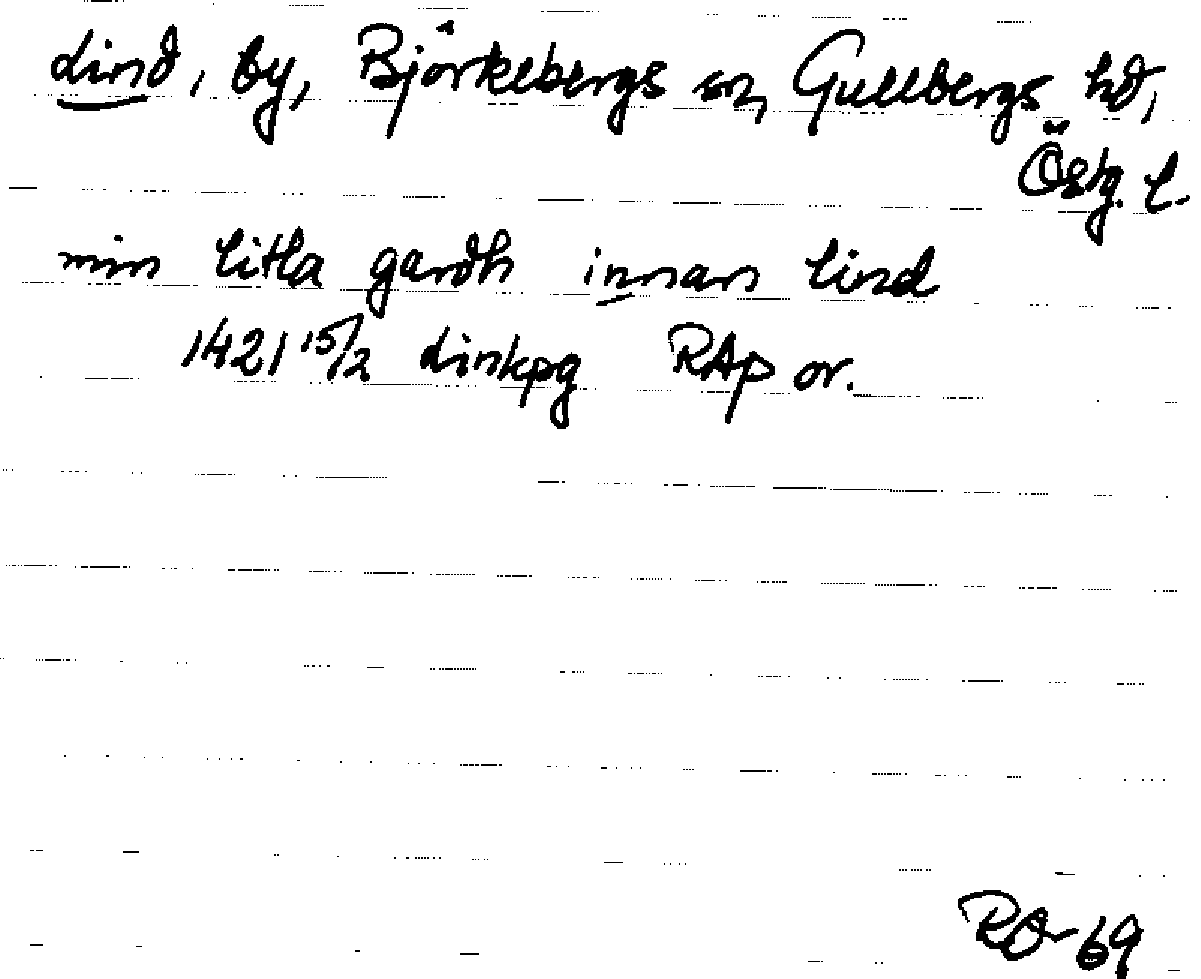 Lind, by, Björkebergs sn, Gullbergs hd,
Östg. l.
min litla gardh innan lind
1421 15/2 Linkpg RAp or.
RO-69